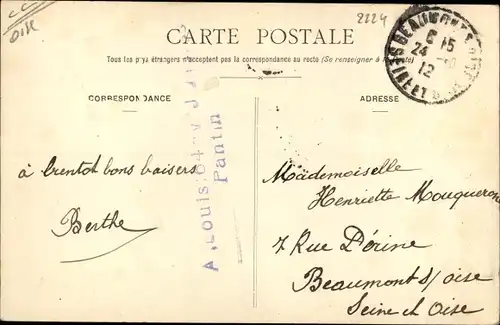 Oise
2224
CARTE POSTALE
Tous les pays étrangers n'acceptent pas la correspondance au recto (Se renseigner à la Poste)
CORRESPONDANCE
ADRESSE
BEAUMONT
6 15
24 - 10
12
SEINE ET OISE
A. Louis
Pantin
à bientot bons baisers
Berthe
Mademoiselle
Henriette Mouqueron
7 Rue Dérine
Beaumont s/ oise
Seine et Oise